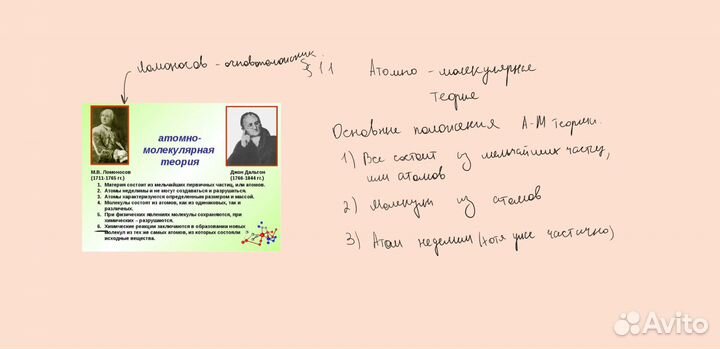 Ломоносов - основоположник.
§ 11 Атомно - молекулярное
теория
атомно-
молекулярная
теория
М.В. Ломоносов
(1711-1765 гг.)
Джон Дальтон
(1766-1844 гг.)
1. Материя состоит из мельчайших первичных частиц, или атомов.
2. Атомы неделимы и не могут создаваться и разрушаться.
3. Атомы характеризуются определенным размером и массой.
4. Молекулы состоят из атомов, как из одинаковых, так и
различных.
5. При физических явлениях молекулы сохраняются, при
химических – разрушаются.
6. Химические реакции заключаются в образовании новых
молекул из тех же самых атомов, из которых состояли
исходные вещества.
Основные положения А-М теории.
1) Все состоит из мельчайших частиц,
или атомов
2) Молекулы из атомов
3) Атом неделим (хотя уже частично)
Avito